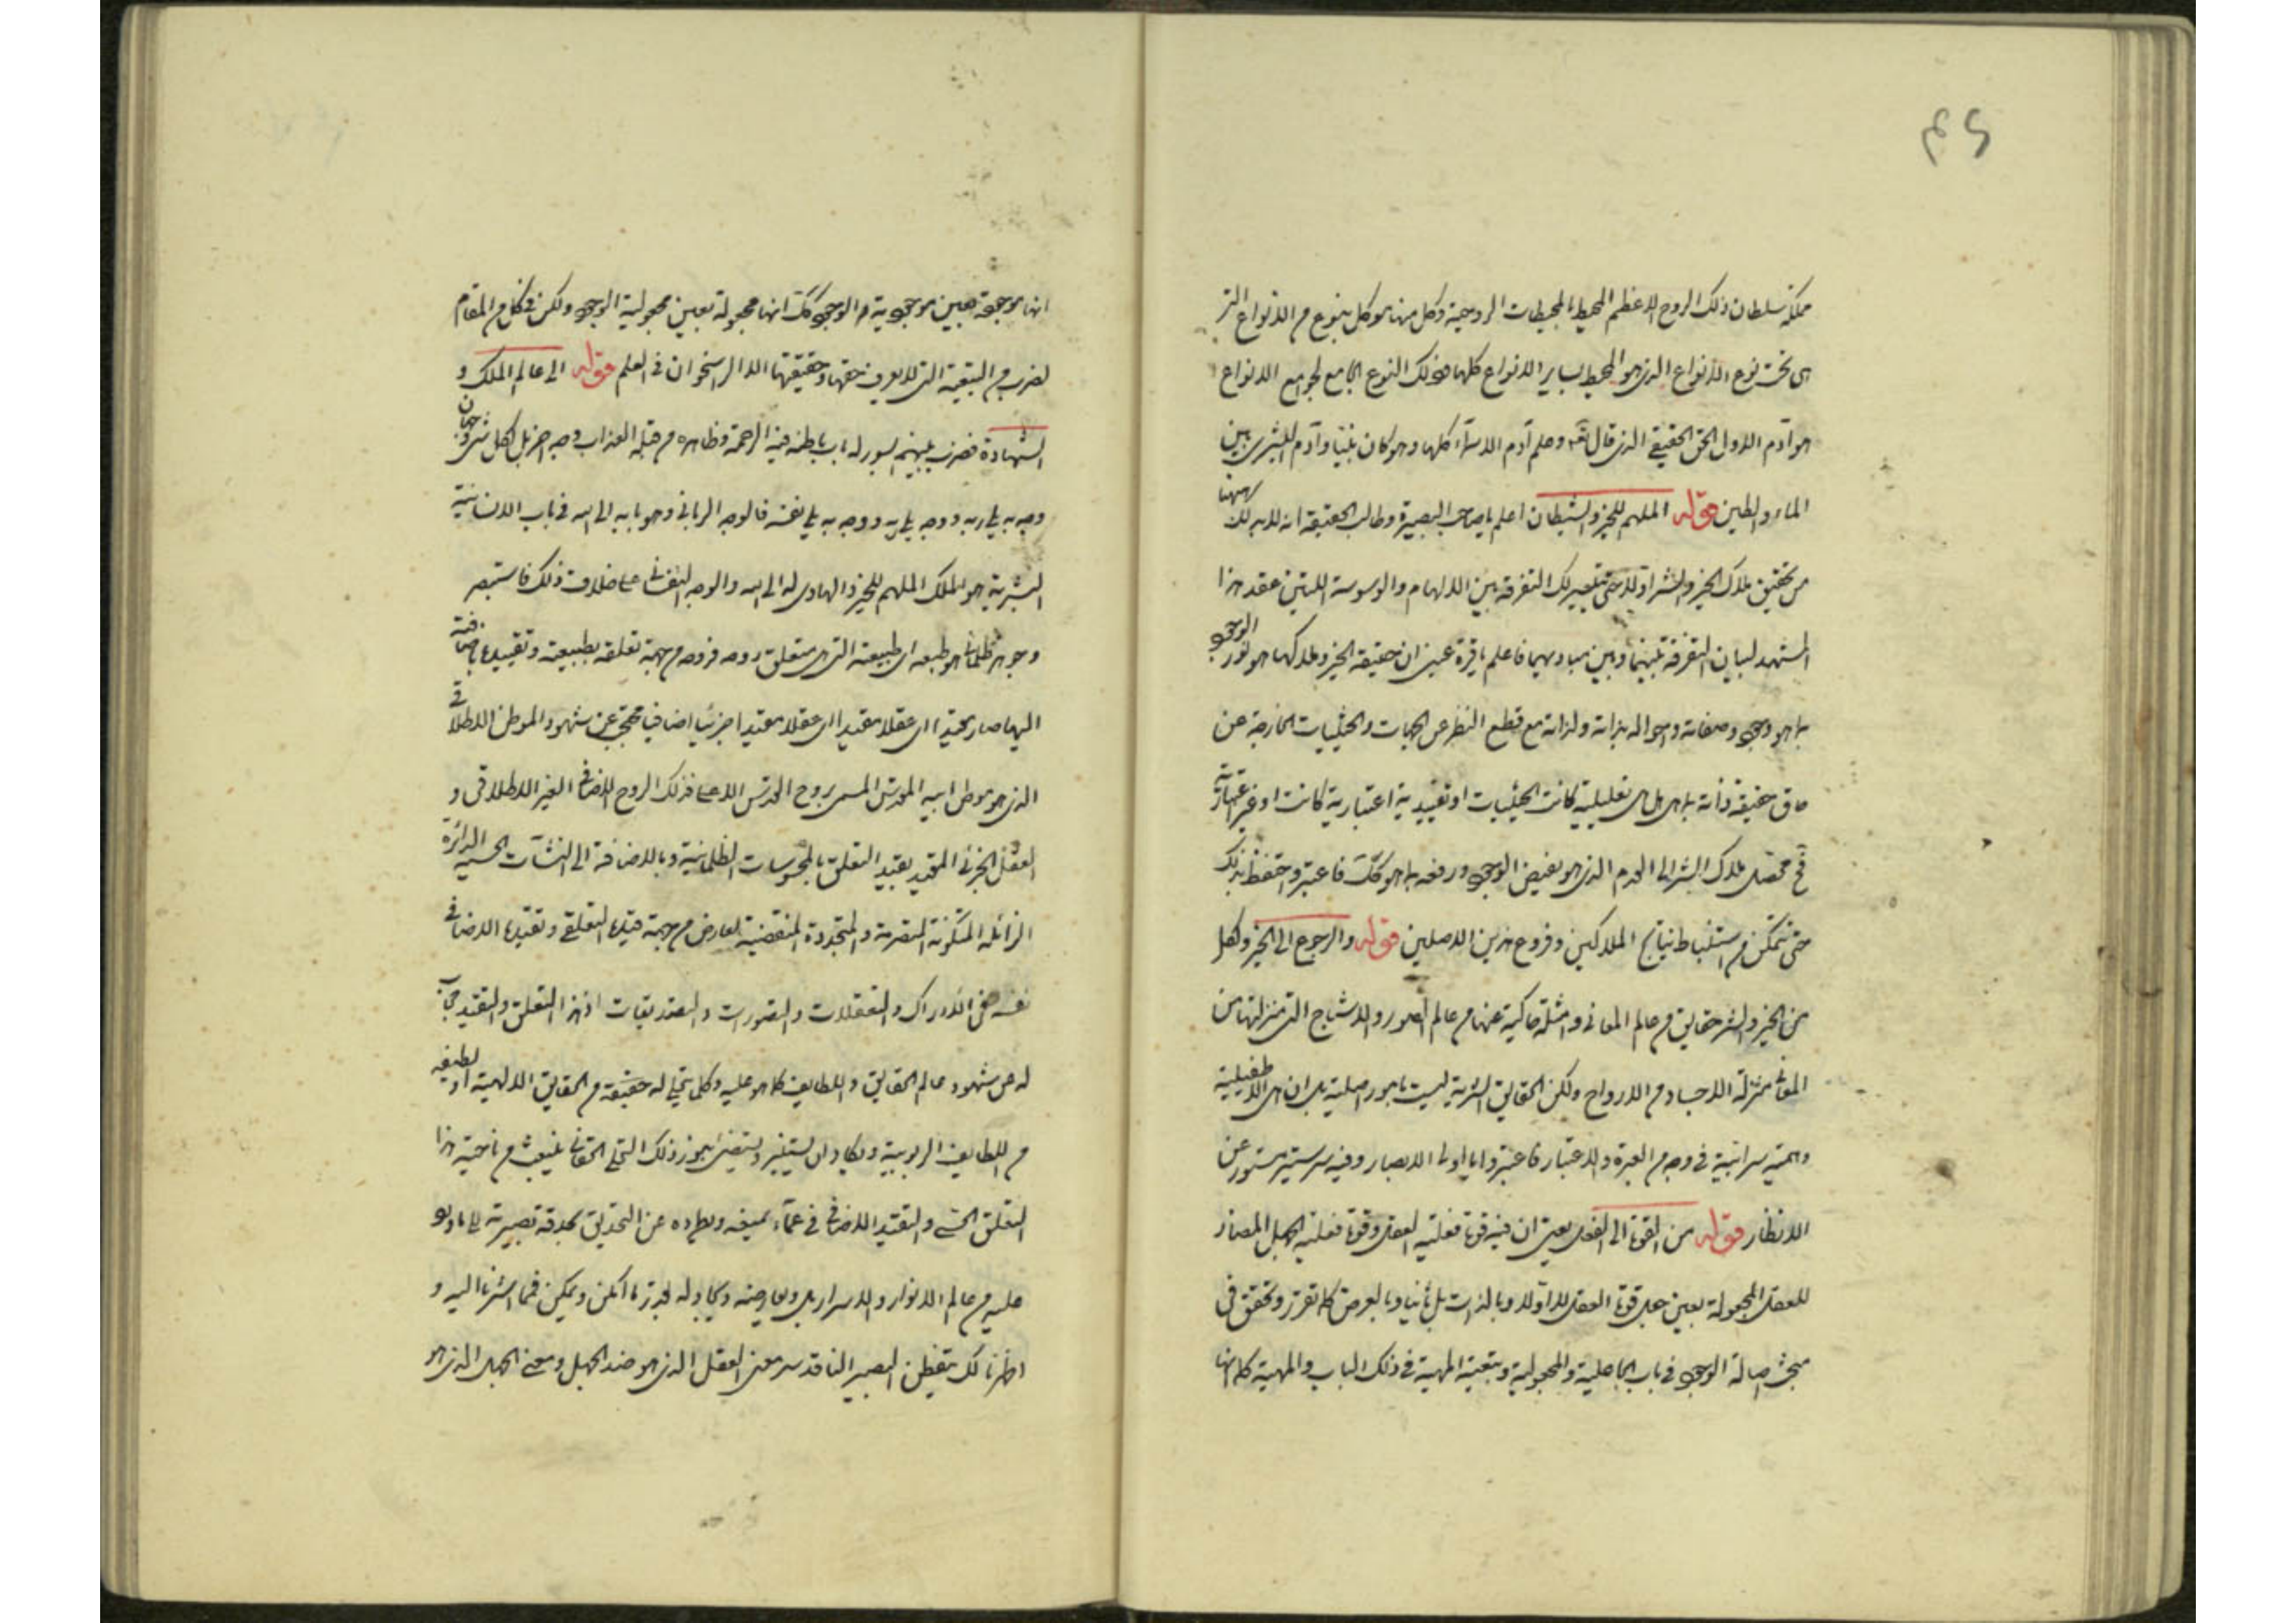 ۴۶
مملکة سلطان ذلک الروح الاعظم المحیط بالمحیطات الروحیة وکل منها موکل بنوع من الانواع التی
هی تحت نوع الانواع الذی هو المحیط بسایر الانواع کلها فذلک النوع الجامع لجوامع الانواع
هو آدم الاول الحق الحقیقی الذی قال تعه وعلم آدم الاسمآء کلها وهو کان نبیا وآدم البشری بین
الماء والطین قوله الملهم للخیر والشیطان اعلم یا صاحب البصیرة وطالب الحقیقة انه لابد لک ههنا
من تحقیق ملاک الخیر والشر اولا حتی یتیسر لک التفرقة بین الالهام والوسوسة اللتین عقد هذا
المشهد لبیان التفرقة بینهما وبین مبادیهما فاعلم یا قرة عینی ان حقیقة الخیر وملاکها هو نور الوجود
بما هو وجود وصفاته واحواله بذاته ولذاته مع قطع النظر عن الجهات والحیثیات الخارجة عن
حاق حقیقة ذاته بما هی هی تعلیلیة کانت الحیثیات او تقییدیة اعتباریة کانت او غیر اعتباریة
فح محصل ملاک الشر الی العدم الذی هو نقیض الوجود ورفعه بما هو کک فاعتبر واحتفظ بذلک
حتی تتمکن من استنباط نتایج الملاکین وفروع هذین الاصلین قوله والرجوع الی الخیر ولکل
من الخیر والشر حقایق من عالم المعانی وامثلة حاکیة عنها من عالم الصور والاشباح التی منزلتها من
المعانی منزلة الاجساد من الارواح ولکن الحقایق الشریة لیست بامور اصلیة بل ان هی الا طفیلیة
وهمیة سرابیة فی وجه من العبرة والاعتبار فاعتبروا یا اولی الابصار وفیه سر ستیر مستور عن
الانظار قوله من القوة الی الفعل یعنی ان فیه قوة فعلیة العقل وقوة فعلیة الجهل المضاد
للعقل المجعولة بعین جعل قوة العقل لا اولا وبالذات بل ثانیا وبالعرض کما تقرر وتحقق فی
مبحث اصالة الوجود فی باب الجاعلیة والمجعولیة وتبعیة المهیة فی ذلک الباب والمهیة کما انها
انها موجودة بعین موجودیة الوجود کک انها مجعولة بعین مجعولیة الوجود ولکن فی کل من المقام
لضرب من التبعیة التی لا یعرف حقها وحقیقتها الا الراسخون فی العلم قوله الی عالم الملک و
الشهادة فضرب بینهم بسور له باب باطنه فیه الرحمة وظاهره من قبله العذاب وجه اخر بل لکل شئ وجهان
وجه به یلی ربه ووجه به یلی نفسه فالوجه الربانی وهو بابه الی الله فی باب الانسانیة
البشریة هو الملک الملهم للخیر والهادی له الی الله والوجه النفسانی علی خلاف ذلک فاستبصر
وجوهر ظلمانی هو طبعه ای طبیعته التی هی متعلق روحه فروحه من جهة تعلقه بطبیعته وتقییدها باضافته
الیها صار مقیدا ای عقلا مقیدا ای عقلا مقیدا جزئیا اضافیا محتجبا عن شهود الموطن الاطلاقی
الذی هو موطن ابیه المقدس المسمی بروح القدس الاعلی فذلک الروح الاضافی الغیر الاطلاقی و
العقل الجزئی المقید بقید التعلق بالمحسوسات الظلمانیة وبالاضافة الی النشآت الحسیة الداثرة
الزائلة المتکونة المتصرمة والمتجددة المنقضیة تعارض من جهة قیدها التعلقی وتقیدها الاضافی
نفسه فی الادراک والتعقلات والتصورات والتصدیقات اذ هذا التعلق والتقید حجاب
له عن شهود عالم الحقایق واللطایف کما هو علیه وکلما یتجلی له حقیقة من الحقایق الالهیة او لطیفة
من اللطایف الربوبیة ویکاد ان یستنیر ویستضئ بنور ذلک التجلی الحقانی فینبعث من ناحیة هذا
التعلق الحسی والتقید الاضافی غمآء یمنعه ویطرده عن التحدیق بحدقة بصیرته الی ما
علیه من عالم الانوار والاسرار بل ویعارضه ویجادله بقدر ما امکن ویمکن فیما اشرنا الیه و
اظهرنا لک یتفطن البصیر الناقد سر معنی العقل الذی هو ضد الجهل ومعنی الجهل الذی هو